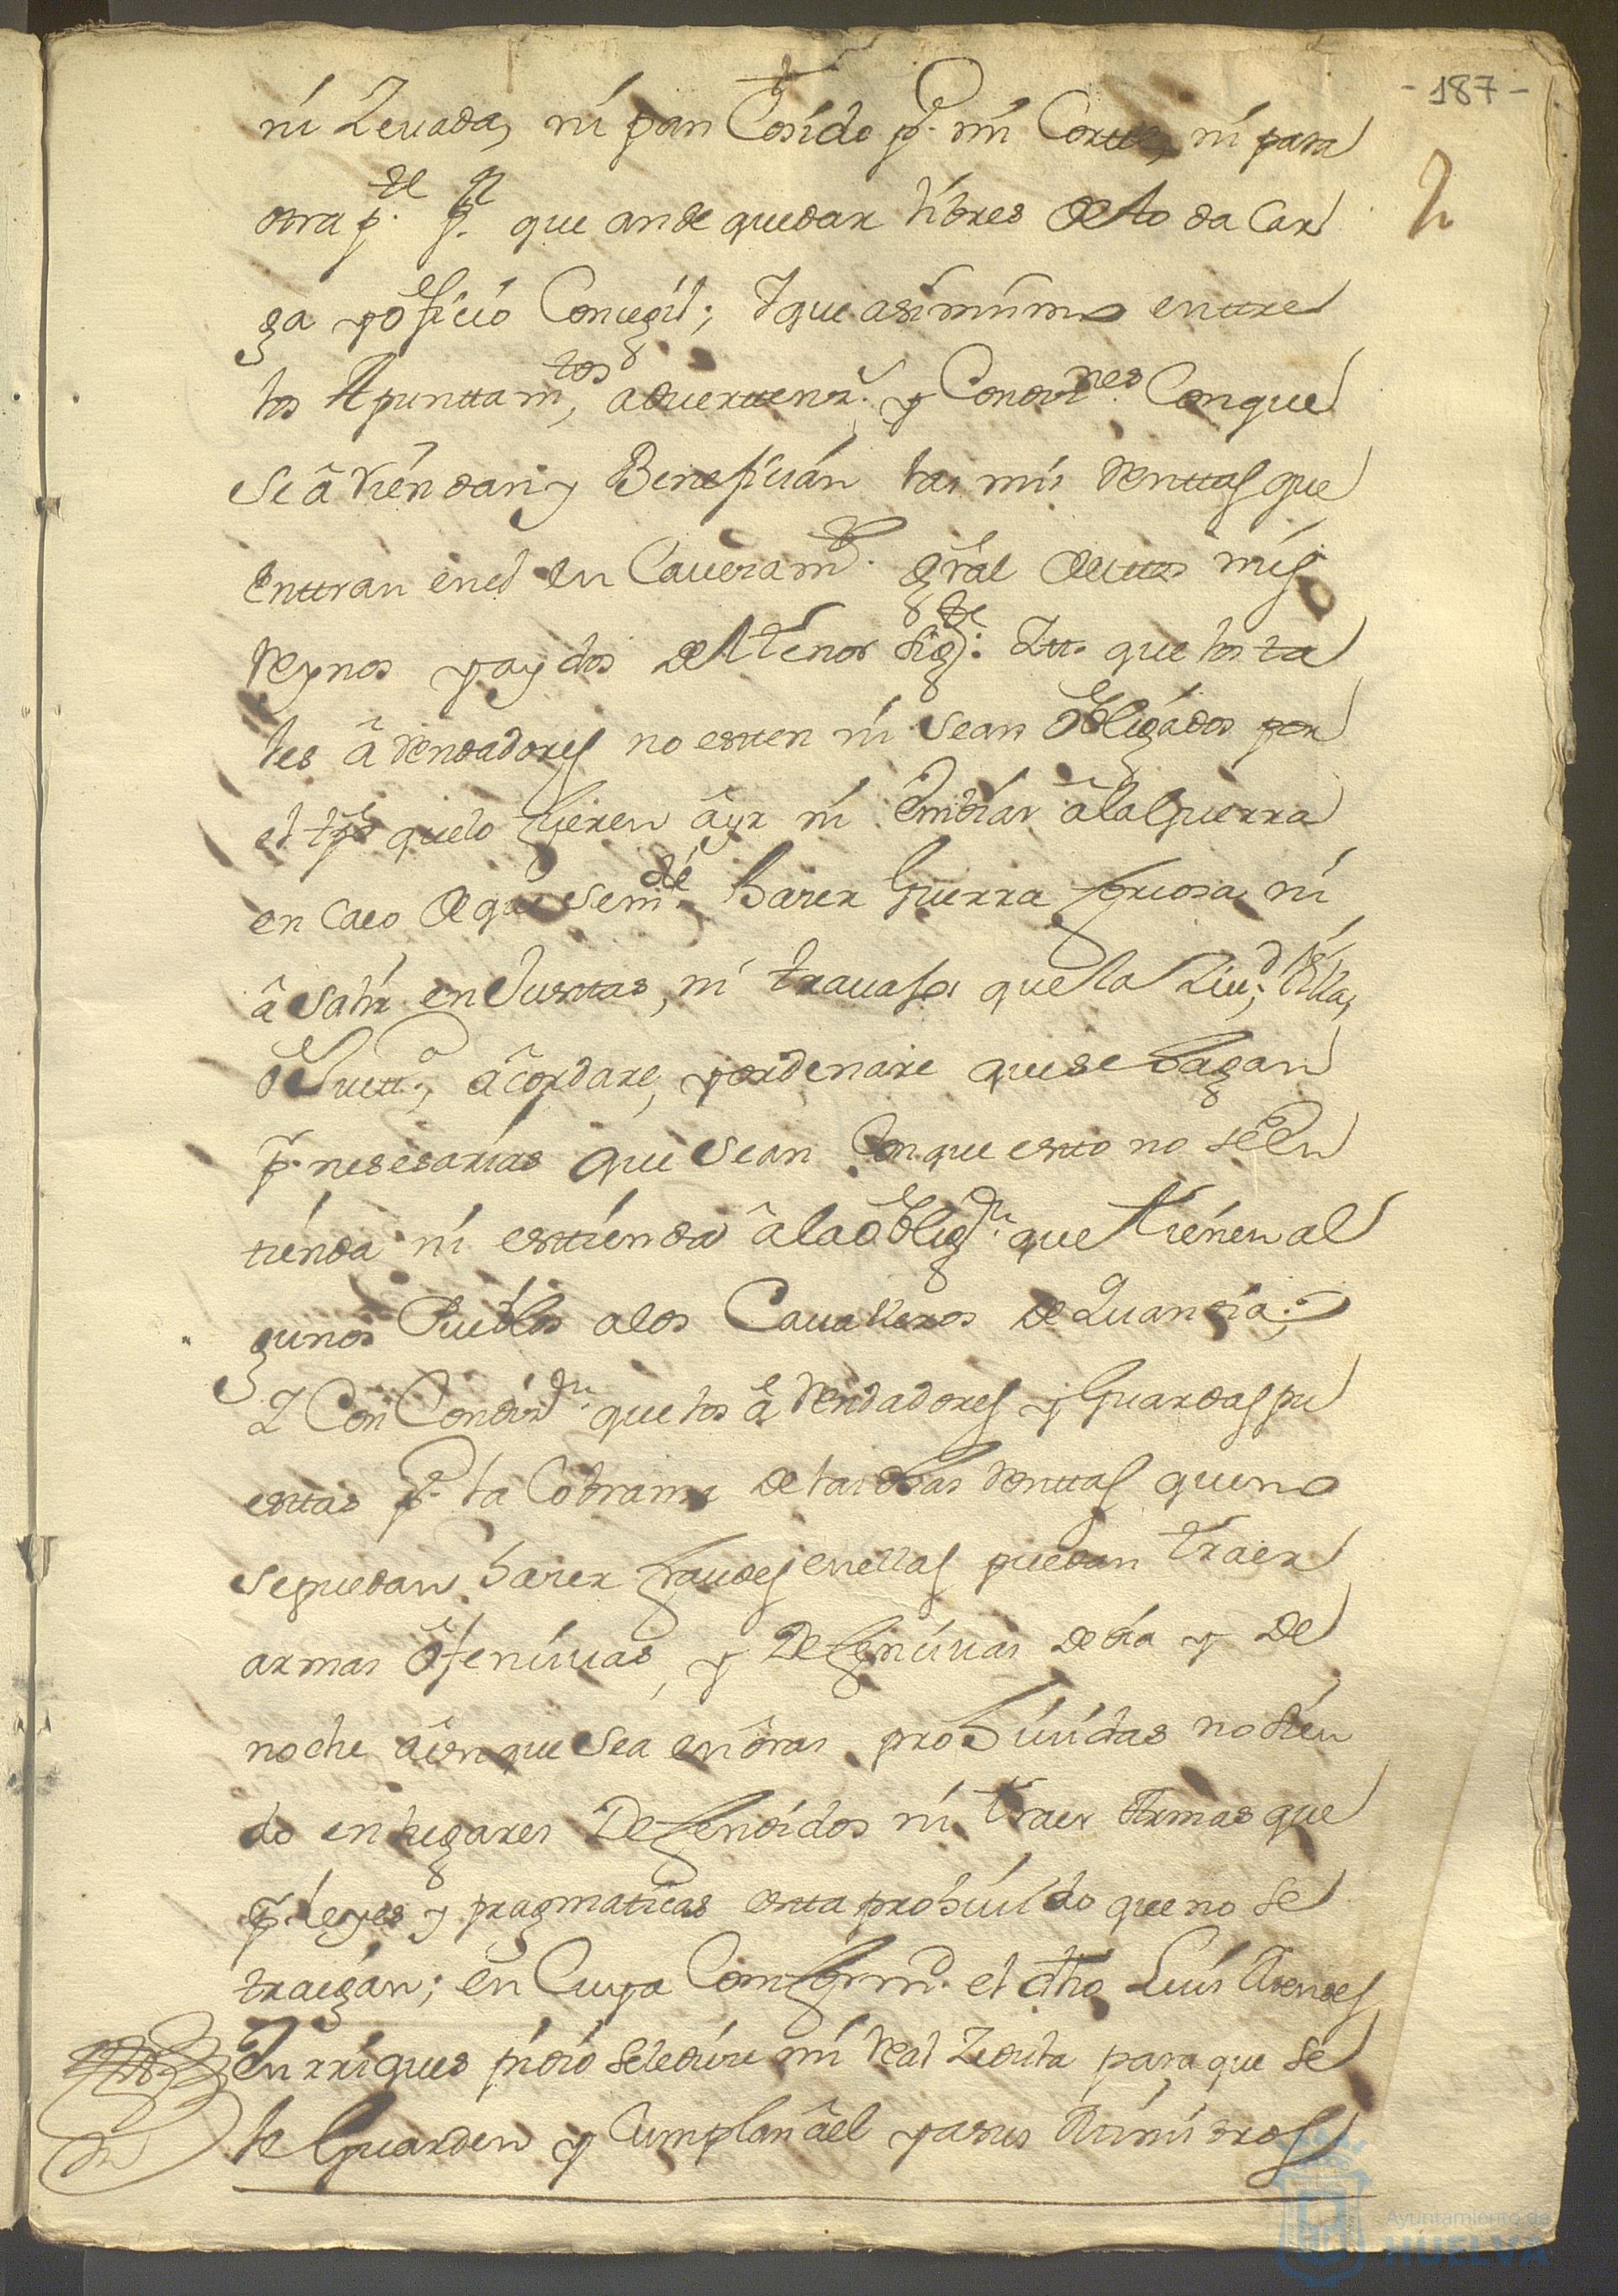 - 187 -
ni Zeuada, ni pan Cosido pª. mi Cortte, ni para
otra pte. pr. que an de quedar libres de toda Car
ga y ofiçio Conçegil; Y que asimismo enttre
los Apunttamtos, aduerttenz. y Condiznes. Con que
se âriendan y Benefiçian las mis Renttas que
enttran en el en Cauezamto. gral de estos mis
Reynos y ay dos del tenor sigte: Ytt. que los ta
les ârrendadores no estten ni sean obligados por
el tpo que lo fueren âyr ni embiar âla Guerra
en caso de que se mde. hazer Guerra forzosa ni
â salir en Justtas, ni trauajos que la Ziud, Villa,
ô Puertto, âcordare, y ordenare que se hagan
pr. nesesarias que sean Con que estto no se en
tienda ni esttienda â la obligon. que tienen al
gunos Pueblos a los Caualleros de Quanzia;
Y Con Condizon. que los ârrendadores y Guardas pu
esttas pª. la Cobranza de las dhas Renttas que no
se puedan hazer fraudes en ellas puedan traer
armas ofensiuas, y Defensiuas de dia y de
noche âunque sea en oras prohiuidas no sien
do en lugares Defendidos ni traer Armas que
pr. leyes y pragmaticas estta prohiuido que no se
traigan; en Cuya Comformd. el dho Luis Mendes
Enrriques pidio se le diese mi Real Zedula para que se
le Guarden y Cumplan âel y a sus Ministros
Ayuntamiento de
HUELVA